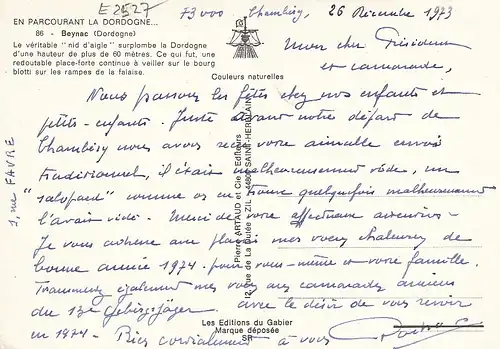 E2527
EN PARCOURANT LA DORDOGNE...
86 - Beynac (Dordogne)
Le véritable "nid d'aigle" surplombe la Dordogne
d'une hauteur de plus de 60 mètres. Ce qui fut, une
redoutable place-forte continue à veiller sur le bourg
blotti sur les rampes de la falaise.
Couleurs naturelles
73000 Chambéry, 26 Décembre 1973
Mon cher Président
et camarade,
Nous passons les fêtes chez nos enfants et
petits-enfants. Juste avant notre départ de
Chambéry nous avons reçu votre aimable envoi
traditionnel, il était malheureusement vide, un
"salopard" comme on en trouve quelquefois malheureusement
l'avait vidé. Merci de votre affectueux
Je vous adresse avec plaisir mes voeux chaleureux de
bonne année 1974 pour vous-même et votre famille.
Transmettez également mes voeux aux camarades anciens
du 13e Gebirgsjäger. avec le désir de vous revoir
en 1974. Bien cordialement à vous
1, rue FAVRE
Pierre ARTAUD et Cie - Editeurs
12, rue de La Dutée - ZIL - 44800 SAINT-HERBLAIN
Les Editions du Gabier
Marque déposée
SR